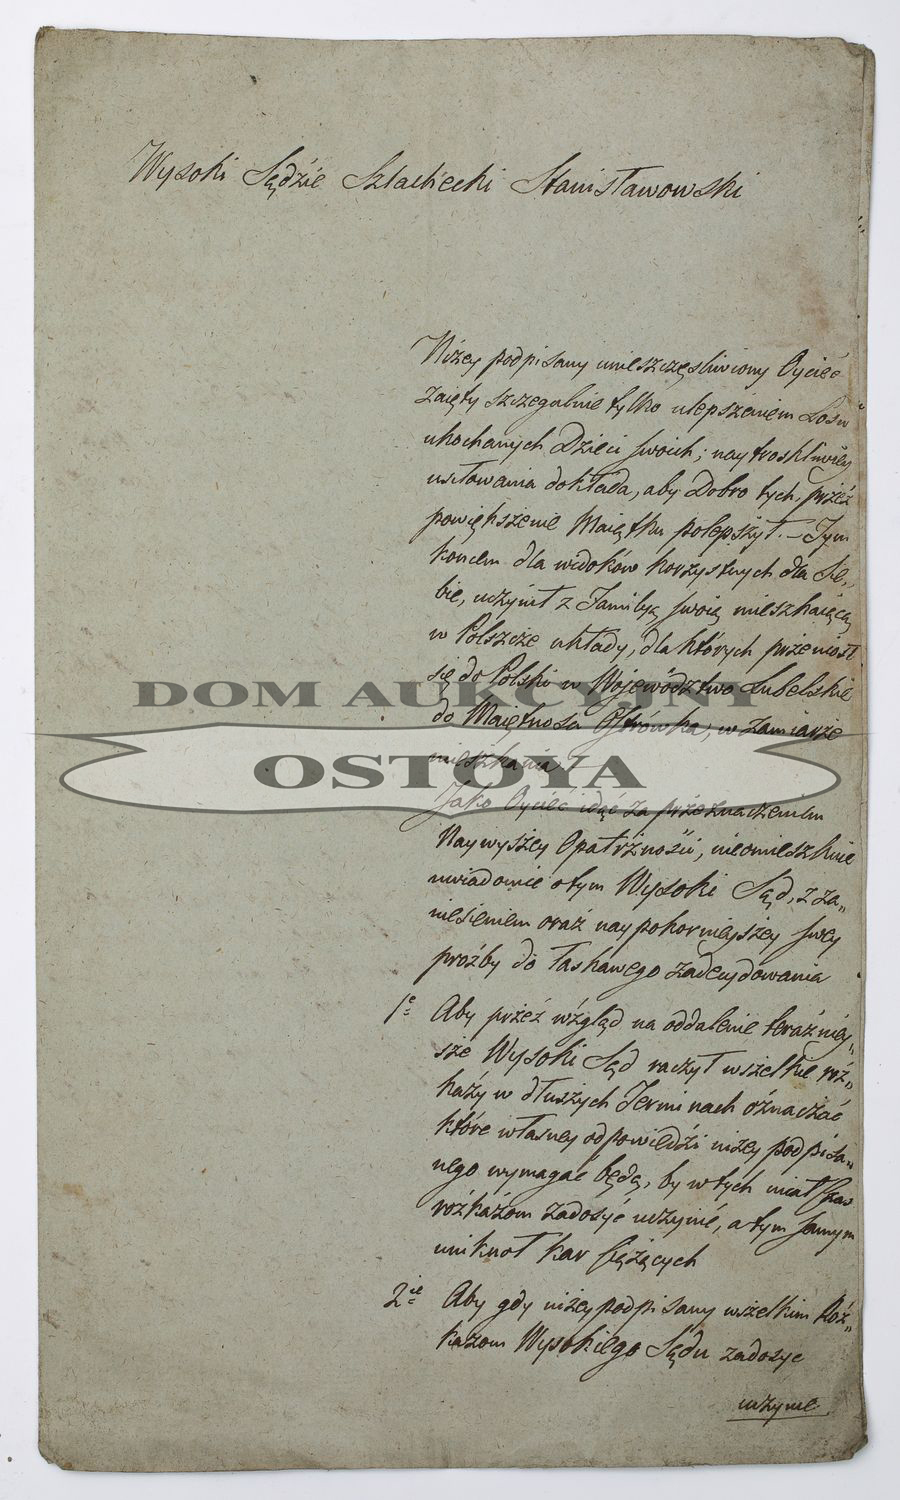 Wysoki Sędzie Szlachecki Stanisławowski
Niżey podpisany unieszczęsliwiony Oyciec
zaięty szczegulnie tylko ulepszeniem Losu
ukochanych Dzieci swoich; nay troskliwiey
usiłowania dokłada, aby Dobro tych, przéz
powiększenie Maiętku polepszył. – Tym
końcem dla widoków korzystnych dla Sie„
bie, uczynił z Familyą swoią mieszkaiącą
w Polszcze układy, dla których przeniosł
się do Polski w Województwo Lubelskie
do Maiętnosci Ostrówka, w zamiarze
mieszkania. –
DOM AUKCYJNY
OSTOYA
Jako Oyciec idąc za przeznaczeniem
Naywyszey Opatrżności, nieomieszkuie
uwiadomic o tym Wysoki Sąd, z za„
niesieniem oraz naypokornieyszey swey
prożby do łaskawego zadecydowania
1e Aby przéz wzgląd na oddalenie teraźniey„
sze Wysoki Sąd raczył wszelkie roż„
kazy w dłuszych Terminach oznaczać
które własney odpowiedzi niżey podpisa„
nego wymagać będą, by w tych miał Czas
rożkazom zadosyć uczynić, a tym samym
uniknoł kar ciążących
2ie Aby gdy niżey podpisany wszelkim Roż„
kazom Wysokiego Sądu zadosyc
uczynie